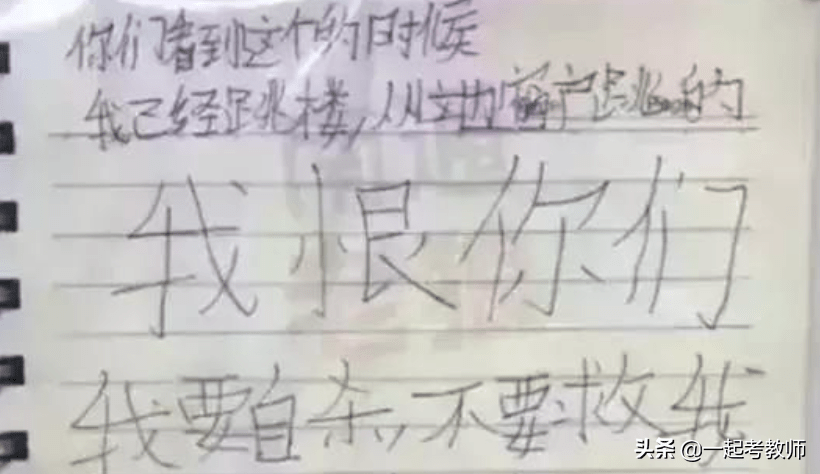 你们看到这个的时候
我已经跳楼,从这边窗户跳的
我恨你们
我要自杀,不要救我
头条 @一起考教师